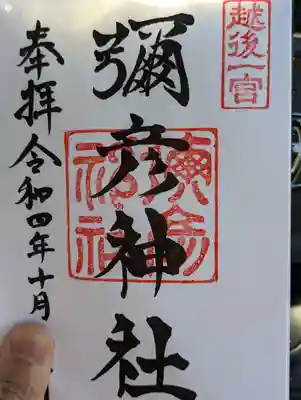 越後一宮
彌彦神社
奉拝 令和四年十月